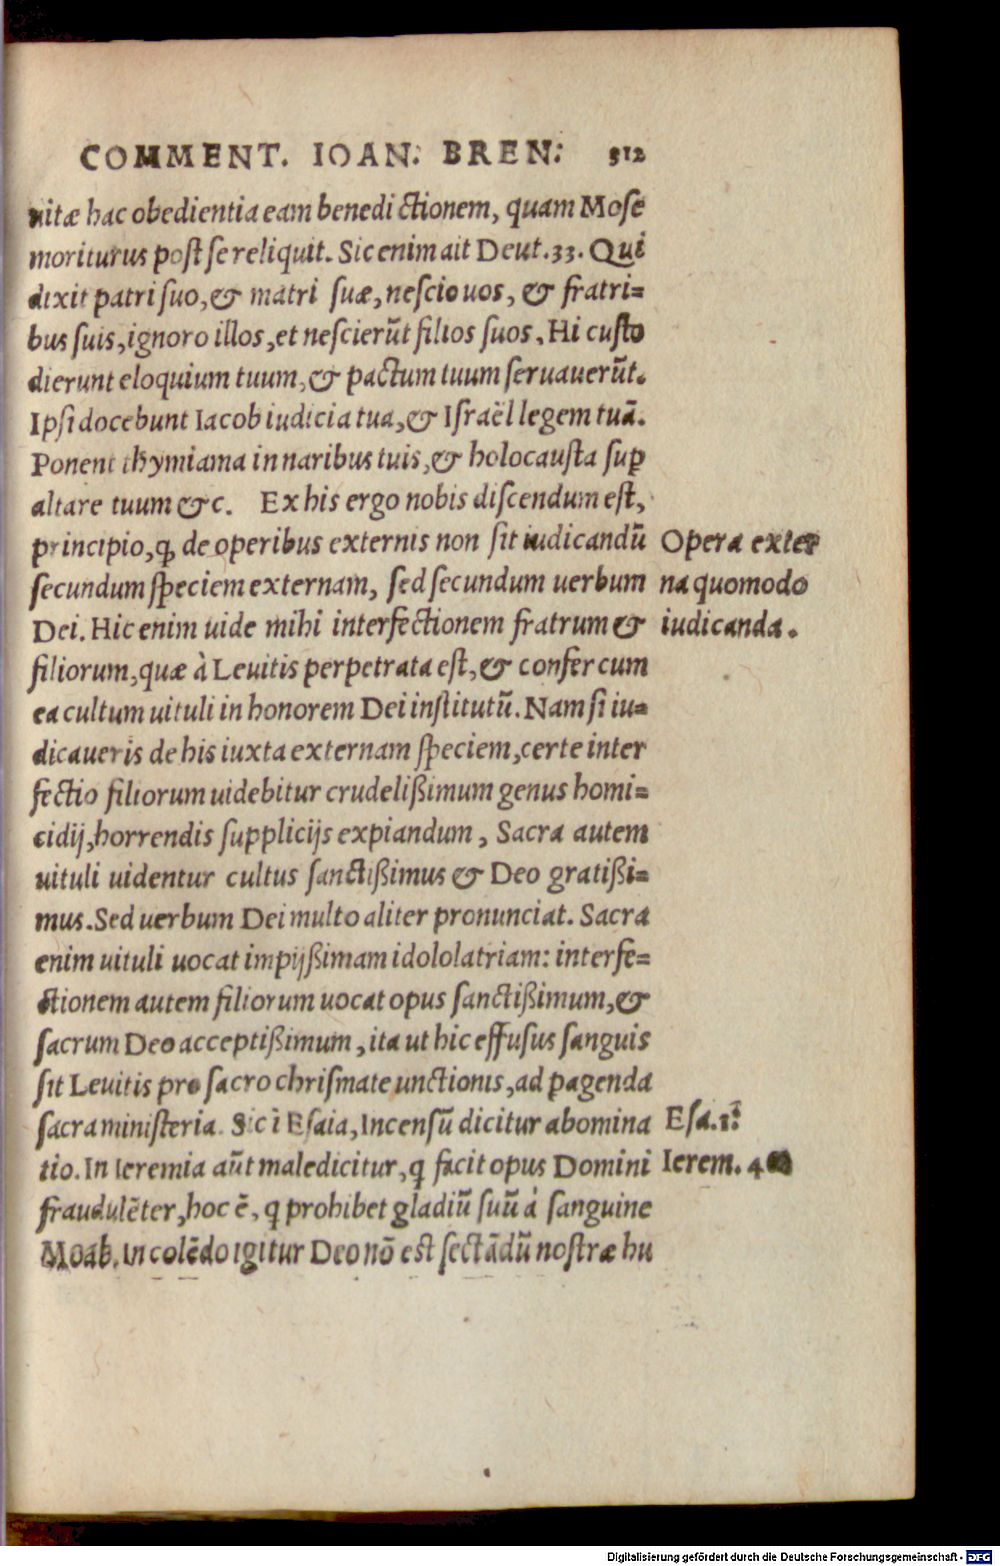 COMMENT. IOAN: BREN: 512
uitæ hac obedientia eam benedictionem, quam Mose
moriturus post se reliquit. Sic enim ait Deut.33. Qui
dixit patri suo, & matri suæ, nescio uos, & fratri=
bus suis, ignoro illos, et nescierũt filios suos. Hi custo
dierunt eloquium tuum, & pactum tuum seruauerũt.
Ipsi docebunt Iacob iudicia tua, & Israël legem tuã.
Ponent thymiama in naribus tuis, & holocausta suꝑ
altare tuum &c. Ex his ergo nobis discendum est,
principio, ꝙ de operibus externis non sit iudicandũ
Opera exter
secundum speciem externam, sed secundum uerbum
na quomodo
Dei. Hic enim uide mihi interfectionem fratrum &
iudicanda.
filiorum, quæ à Leuitis perpetrata est, & confer cum
ea cultum uituli in honorem Dei institutũ. Nam si iu=
dicaueris de his iuxta externam speciem, certe inter
fectio filiorum uidebitur crudelißimum genus homi=
cidij, horrendis supplicijs expiandum, Sacra autem
uituli uidentur cultus sanctißimus & Deo gratißi=
mus. Sed uerbum Dei multo aliter pronunciat. Sacra
enim uituli uocat impijßimam idololatriam: interfe=
ctionem autem filiorum uocat opus sanctißimum, &
sacrum Deo acceptißimum, ita ut hic effusus sanguis
sit Leuitis pro sacro chrismate unctionis, ad ꝑagenda
sacra ministeria. Sic ĩ Esaia, Incensũ dicitur abomina
Esa.1.
tio. In Ieremia aũt maledicitur, ꝗ facit opus Domini
Ierem. 4
fraudulẽter, hoc ẽ, ꝗ prohibet gladiũ suũ à sanguine
Moab. In colẽdo igitur Deo nõ est sectãdũ nostræ hu
Digitalisierung gefördert durch die Deutsche Forschungsgemeinschaft - DFG